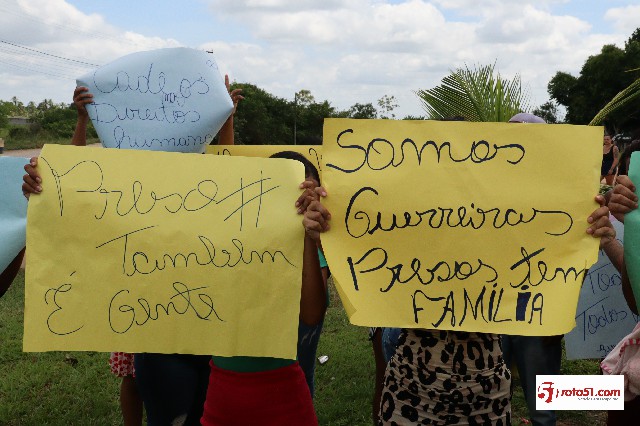 Cadê os
Direitos
humanos
Preso #
Também
É Gente
Somos
Guerreiras
Presos tem
FAMÍLIA
Todos
rota51.com